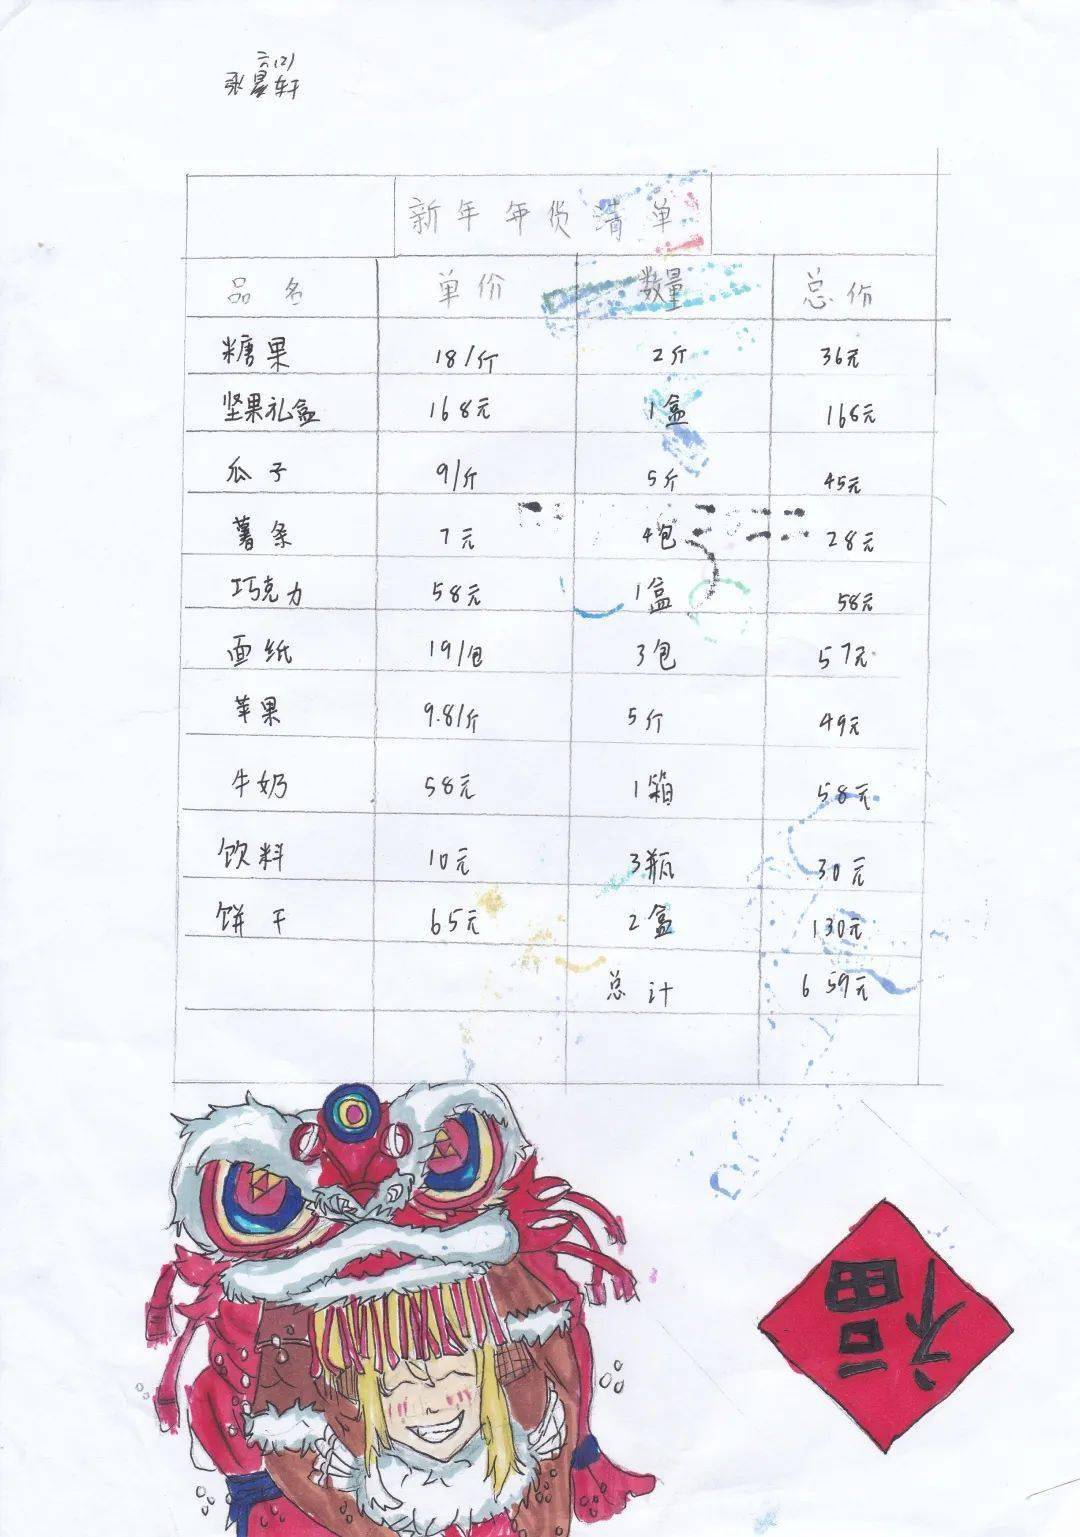 六(2)
张晨轩
新年年货清单
品名 单价 数量 总价
糖果 18/斤 2斤 36元
坚果礼盒 168元 1盒 168元
瓜子 9/斤 5斤 45元
薯条 7元 4包 28元
巧克力 58元 1盒 58元
面纸 19/包 3包 57元
苹果 9.8/斤 5斤 49元
牛奶 58元 1箱 58元
饮料 10元 3瓶 30元
饼干 65元 2盒 130元
总计 659元
福